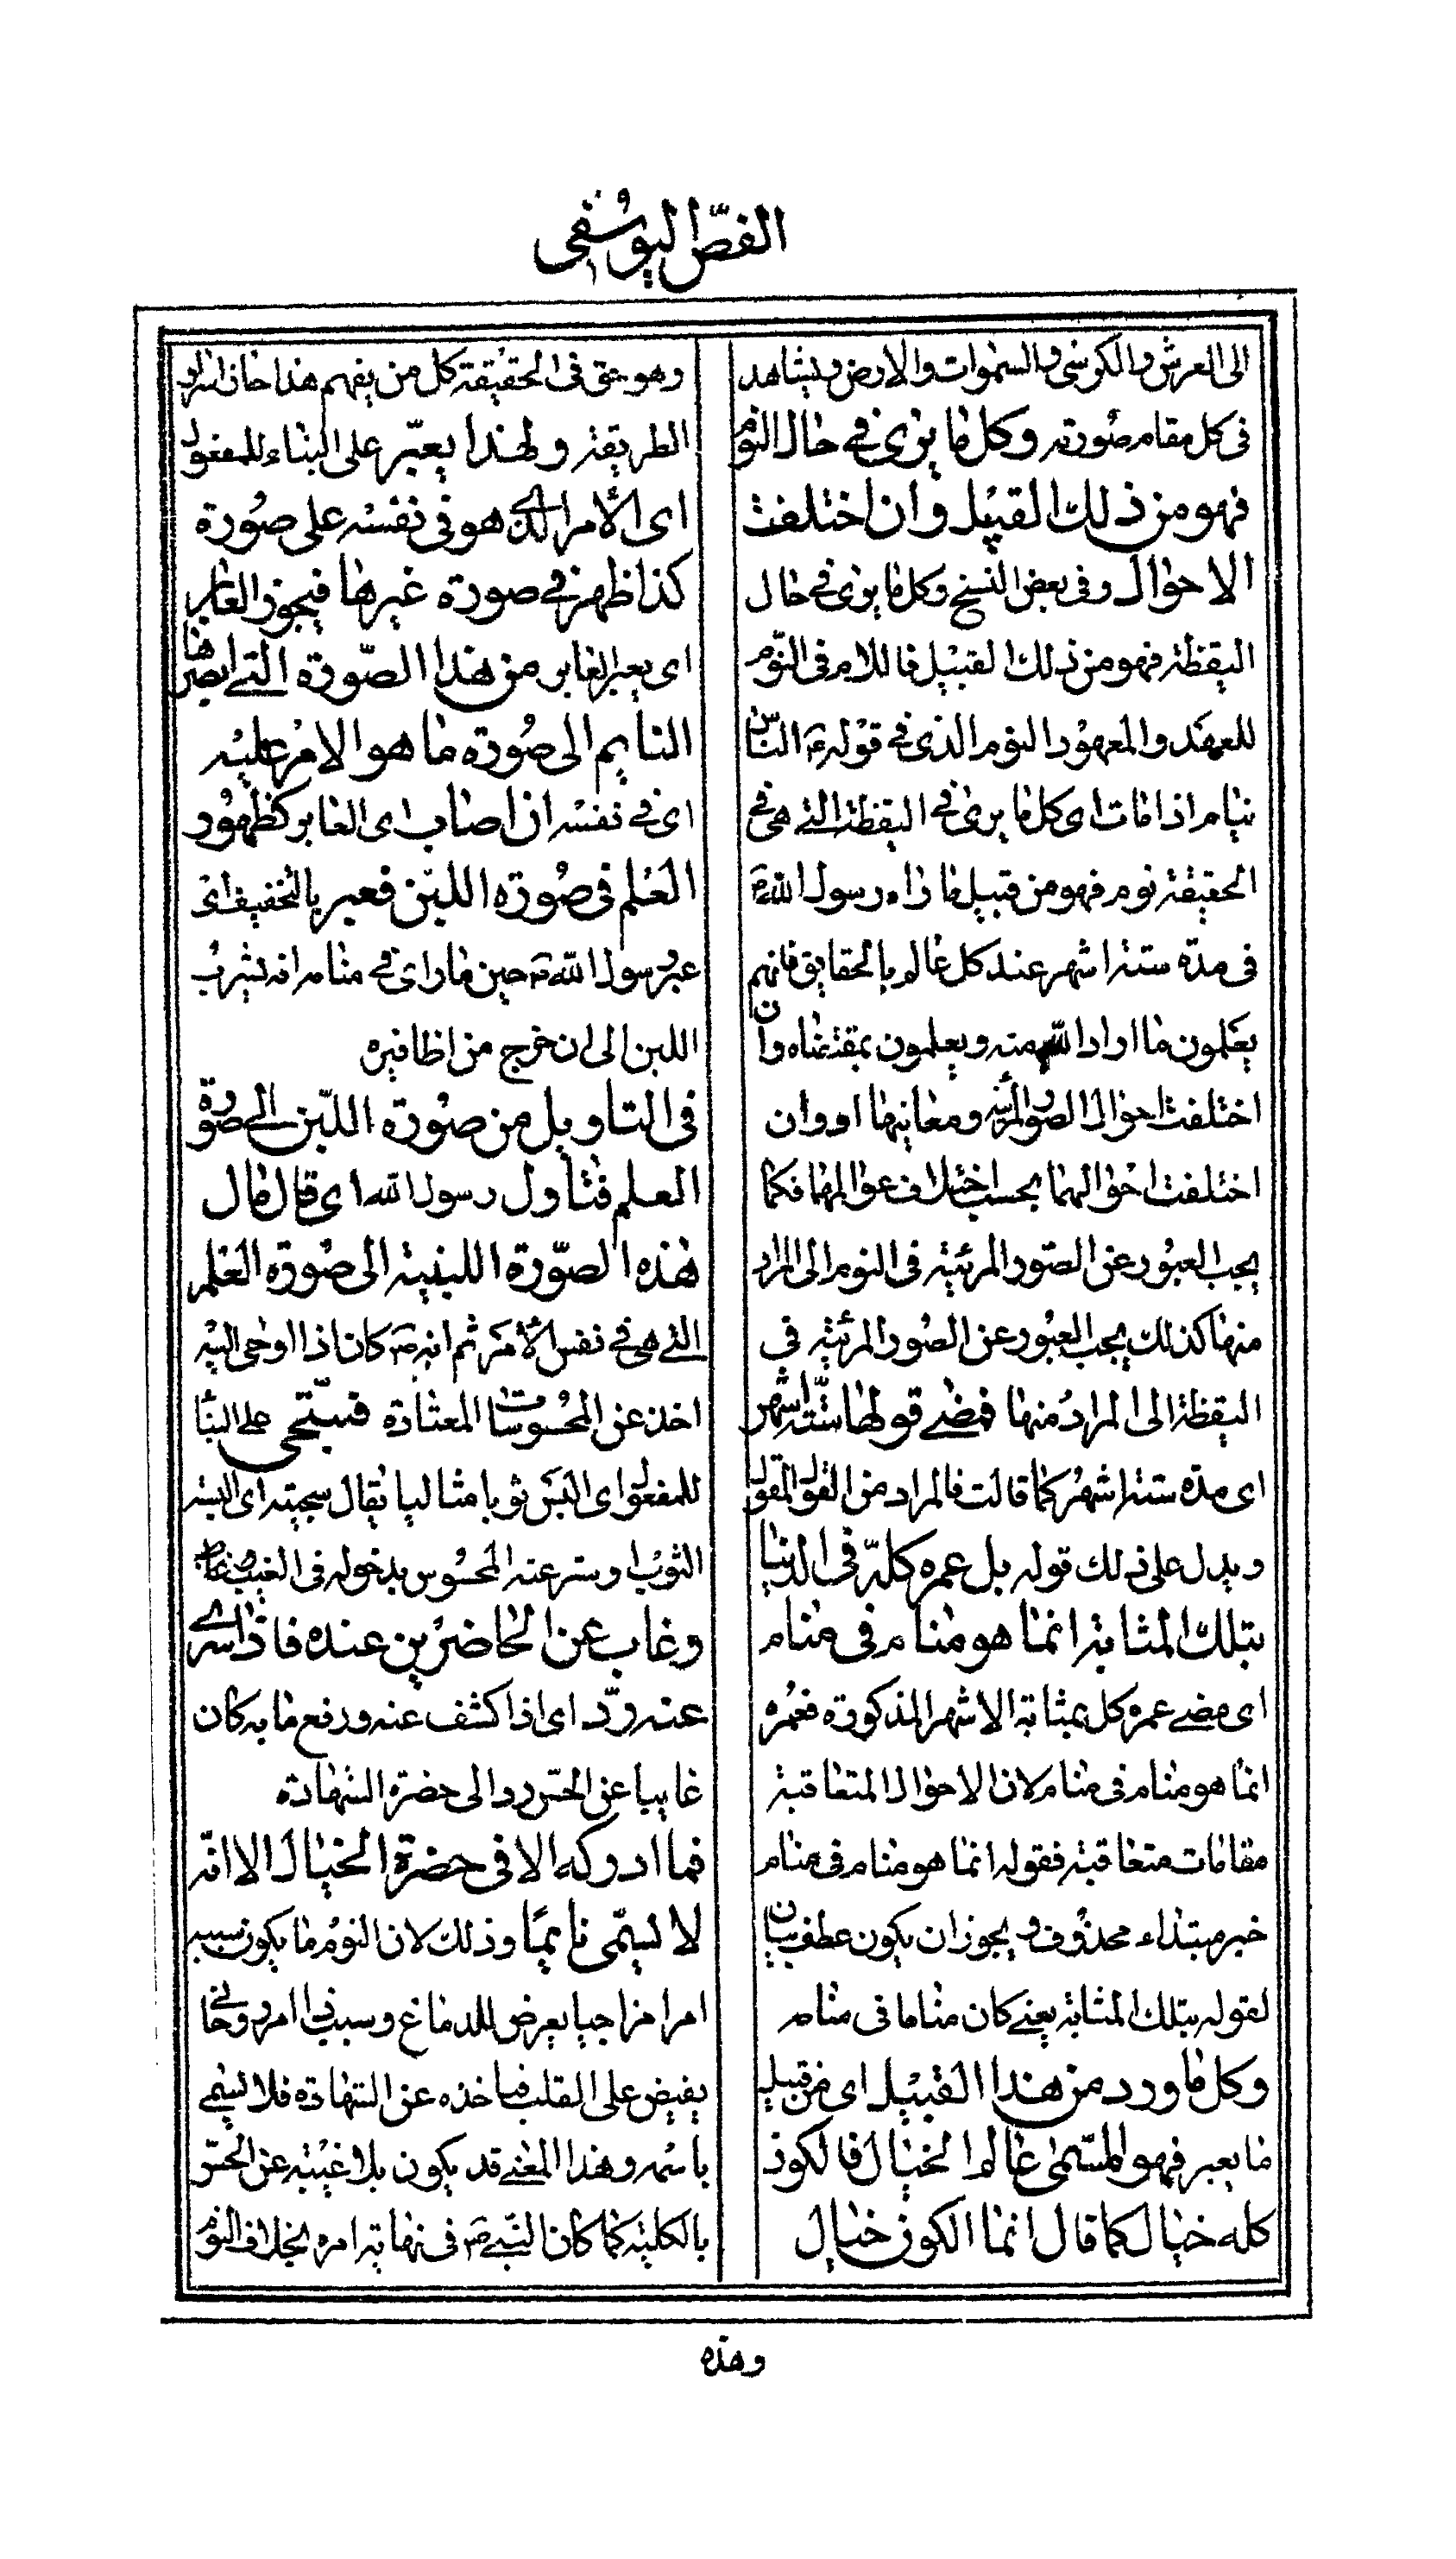 الفصّ اليوسفى
الى العرش والكرسى والسموات والارض ويشاهد
فى كل مقام صورته وكل ما يرى فى حال النوم
فهو من ذلك القبيل وان اختلفت
الاحوال وفى بعض النسخ وكل ما يرى فى حال
اليقظة فهو من ذلك القبيل فاللام فى النّوم
للعهد والمعهود النوم الذى فى قوله ع الناس
نيام اذا ماتوا اى كل ما يرى فى اليقظة التى هى فى
الحقيقة نوم فهو من قبيل ما راه رسول الله ص
فى مدة ستة اشهر عند كل عالم بالحقايق فانهم
يعلمون ما اراد الله منه ويعلمون بمقتضاه وان
اختلفت احوال الصور المرئية ومعانيها او وان
اختلفت احوالهما بحسب اختلاف عوالمهما فكما
يجب العبور عن الصور المرئية فى النوم الى المراد
منها كذلك يجب العبور عن الصور المرئية فى
اليقظة الى المراد منها فمضى قولها ستّة اشهر
اى مدة ستة اشهر كما قالت فالمراد من القول المقول
ويدل على ذلك قوله بل عمره كلّه فى الدنيا
بتلك المثابة انما هو منام فى منام
اى مضى عمره كل بمثابة الاشهر المذكورة فعمره
انما هو منام فى منام لان الاحوال المتعاقبة
مقامات متعاقبة فقوله انما هو منام فى منام
خبر مبتداء محذوف ويجوز ان يكون عطف بيان
لقوله بتلك المثابة يعنى كان مناما فى منام
وكل ما ورد من هذا القبيل اى من قبيل
ما يعبر فهو المسّمى عالم الخيال فالكون
كله خيال كما قال انما الكون خيال
وهو حق فى الحقيقة كل من يفهم هذا حاز اسرار
الطريقة ولهذا يعبّر على البناء للمفعول
اى الأمر الذى هو فى نفسه على صورة
كذا ظهر فى صورة غيرها فيجوز العابر
اى يعبر العابر من هذا الصّورة التى ابصرها
النايم الى صورة ما هو الامر عليه
اى فى نفسه ان اصاب اى العابر كظهور
العلم فى صورة اللبن فعبر بالتخفيف اى
عبر رسول الله ص حين ما راى فى منامه انه يشرب
اللبن الى ان خرج من اظافيره
فى التاويل من صورة اللّبن الى صورة
العلم فتأول رسول الله اى قال مال
هذه الصّورة اللبنية الى صورة العلم
التى هى فى نفس الأمر ثم انه ص كان اذا اوحى اليه
اخذ عن المحسوسات المعتادة فسجّى على البنا
للمفعول اى البس ثوبا مثاليا يقال سجيته اى البسته
الثوب او ستر عنه المحسوس بدخوله فى الغيب
وغاب عن الحاضرين عنده فاذا سرى
عنه ردّ اى اذا كشف عنه ورفع ما به كان
غايبا عن الحسّ رد الى حضرة الشهادة
فما ادركه الا فى حضرة الخيال الا انّه
لا يسمّى نايمًا وذلك لان النوم ما يكون سببه
امرا مزاجيا يعرض للدماغ وسبب هذا امر روحانى
يفيض على القلب فياخذه عن الشهادة فلا يسمى
باسمه وهذا المعنى قد يكون بلا غيبة عن الحسّ
بالكلية كما كان النّبى ص فى نهاية امره بخلاف النوم
وهذه